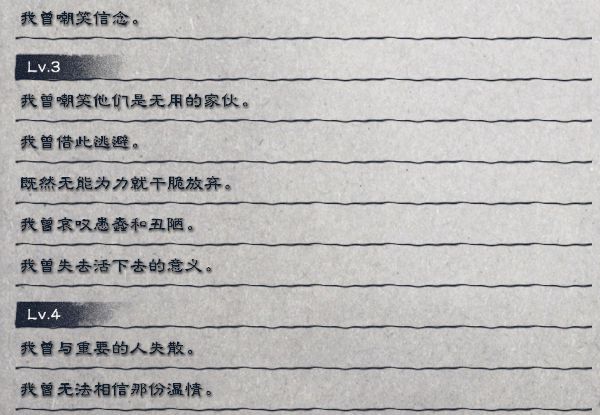 我曾嘲笑信念。
Lv.3
我曾嘲笑他们是无用的家伙。
我曾借此逃避。
既然无能为力就干脆放弃。
我曾哀叹愚蠢和丑陋。
我曾失去活下去的意义。
Lv.4
我曾与重要的人失散。
我曾无法相信那份温情。